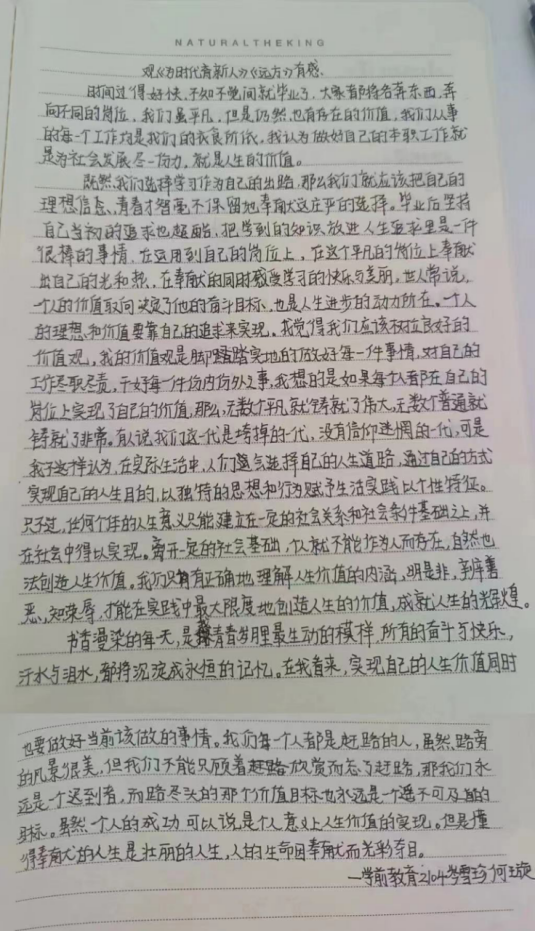 NATURALTHEKING
观《为时代育新人》《远方》有感
时间过得好快,不知不觉间就毕业了,大家都将各奔东西,奔
向不同的岗位,我们虽平凡,但是仍然也有存在的价值,我们从事
的每一个工作均是我们的衣食所依。我认为做好自己的本职工作就
是为社会发展尽一份力,就是人生的价值。
既然我们选择学习作为自己的出路,那么我们就应该把自己的
理想信念、青春才智毫不保留地奉献这庄严的选择。毕业后坚持
自己当初的追求也超酷,把学到的知识放进人生追求里是一件
很棒的事情,在运用到自己的岗位上,在这个平凡的岗位上奉献
出自己的光和热,在奉献的同时感受学习的快乐与美丽。世人常说,
一个人的价值取向决定了他的奋斗目标,也是人生进步的动力所在。一个人
的理想和价值要靠自己的追求来实现。我觉得我们应该树立良好的
价值观,我的价值观是脚踏实地的做好每一件事情,对自己的
工作尽职尽责,干好每一件份内份外之事,我想的是如果每个人都在自己的
岗位上实现了自己的价值,那么,无数个平凡就铸就了伟大,无数个普通就
铸就了非常。有人说我们这一代是垮掉的一代,没有信仰迷惘的一代,可是
我不这样认为,在实际生活中,人们总会选择自己的人生道路,通过自己的方式
实现自己的人生目的,以独特的思想和行为赋予生活实践以个性特征。
只不过,任何个体的人生意义只能建立在一定的社会关系和社会条件基础之上,并
在社会中得以实现。离开一定的社会基础,个人就不能作为人而存在,自然也
法创造人生价值。我们只有正确地理解人生价值的内涵,明是非,辨善
恶,知荣辱,才能在实践中最大限度地创造人生的价值,成就人生的辉煌。
书香浸染的每天,是青春岁月里最生动的模样,所有的奋斗与快乐,
汗水与泪水,都将沉淀成永恒的记忆。在我看来,实现自己的人生价值同时
也要做好当前该做的事情。我们每个人都是赶路的人,虽然路旁
的风景很美,但我们不能只顾着欣赏而忘了赶路,那我们永
远是一个迟到者,而路尽头的那个价值目标也永远是一个遥不可及的
目标。虽然个人的成功可以说是个人意义上人生价值的实现。但是懂
得奉献的人生是壮丽的人生,人的生命因奉献而光彩夺目。
—学前教育2104岑雪珍 何玉旋